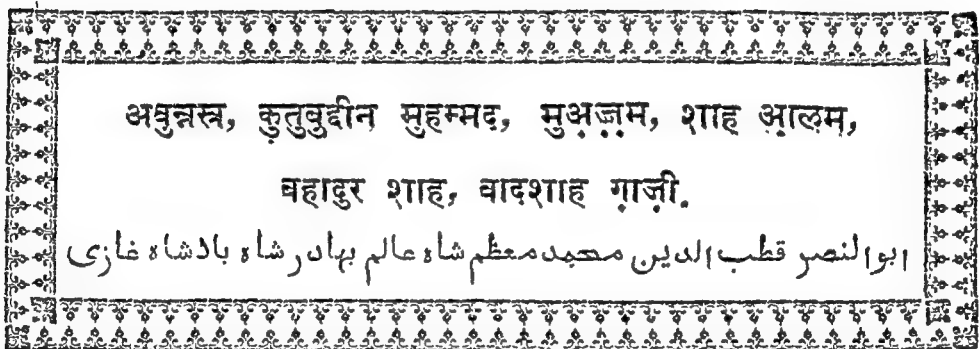 अबुन्नस्र, क़ुतुबुद्दीन मुहम्मद, मुअ़ज़्ज़म, शाह आ़लम,
बहादुर शाह, बादशाह ग़ाज़ी.
ابوالنصر قطب الدین محمد معظم شاه عالم بهادر شاه بادشاه غازی